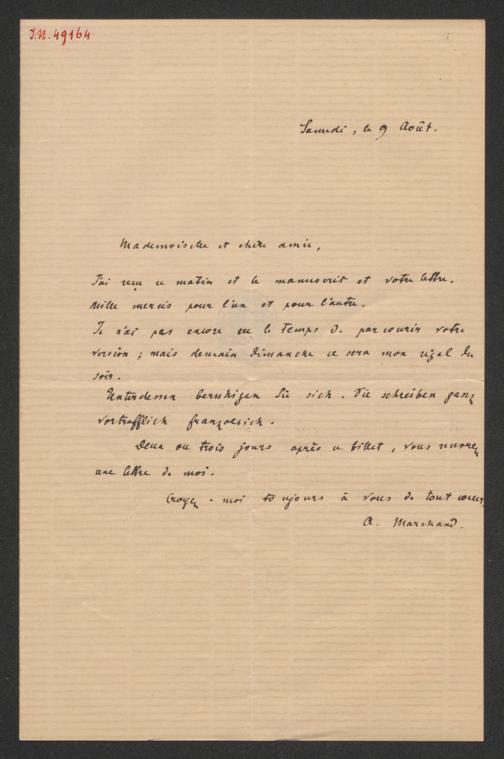 J.N. 49164
Samedi, le 9 Août.
Mademoiselle et chère amie,
J'ai reçu ce matin et le manuscrit et votre lettre.
Mille mercis pour l'un et pour l'autre.
Je n'ai pas encore eu le temps de parcourir votre
version ; mais demain dimanche ce sera mon régal du
soir.
Unterdessen beruhigen Sie sich. Sie schreiben ganz
vortrefflich französisch.
Deux ou trois jours après ce billet, vous aurez
une lettre de moi.
Croyez-moi toujours à vous de tout coeur,
A. Marchand.